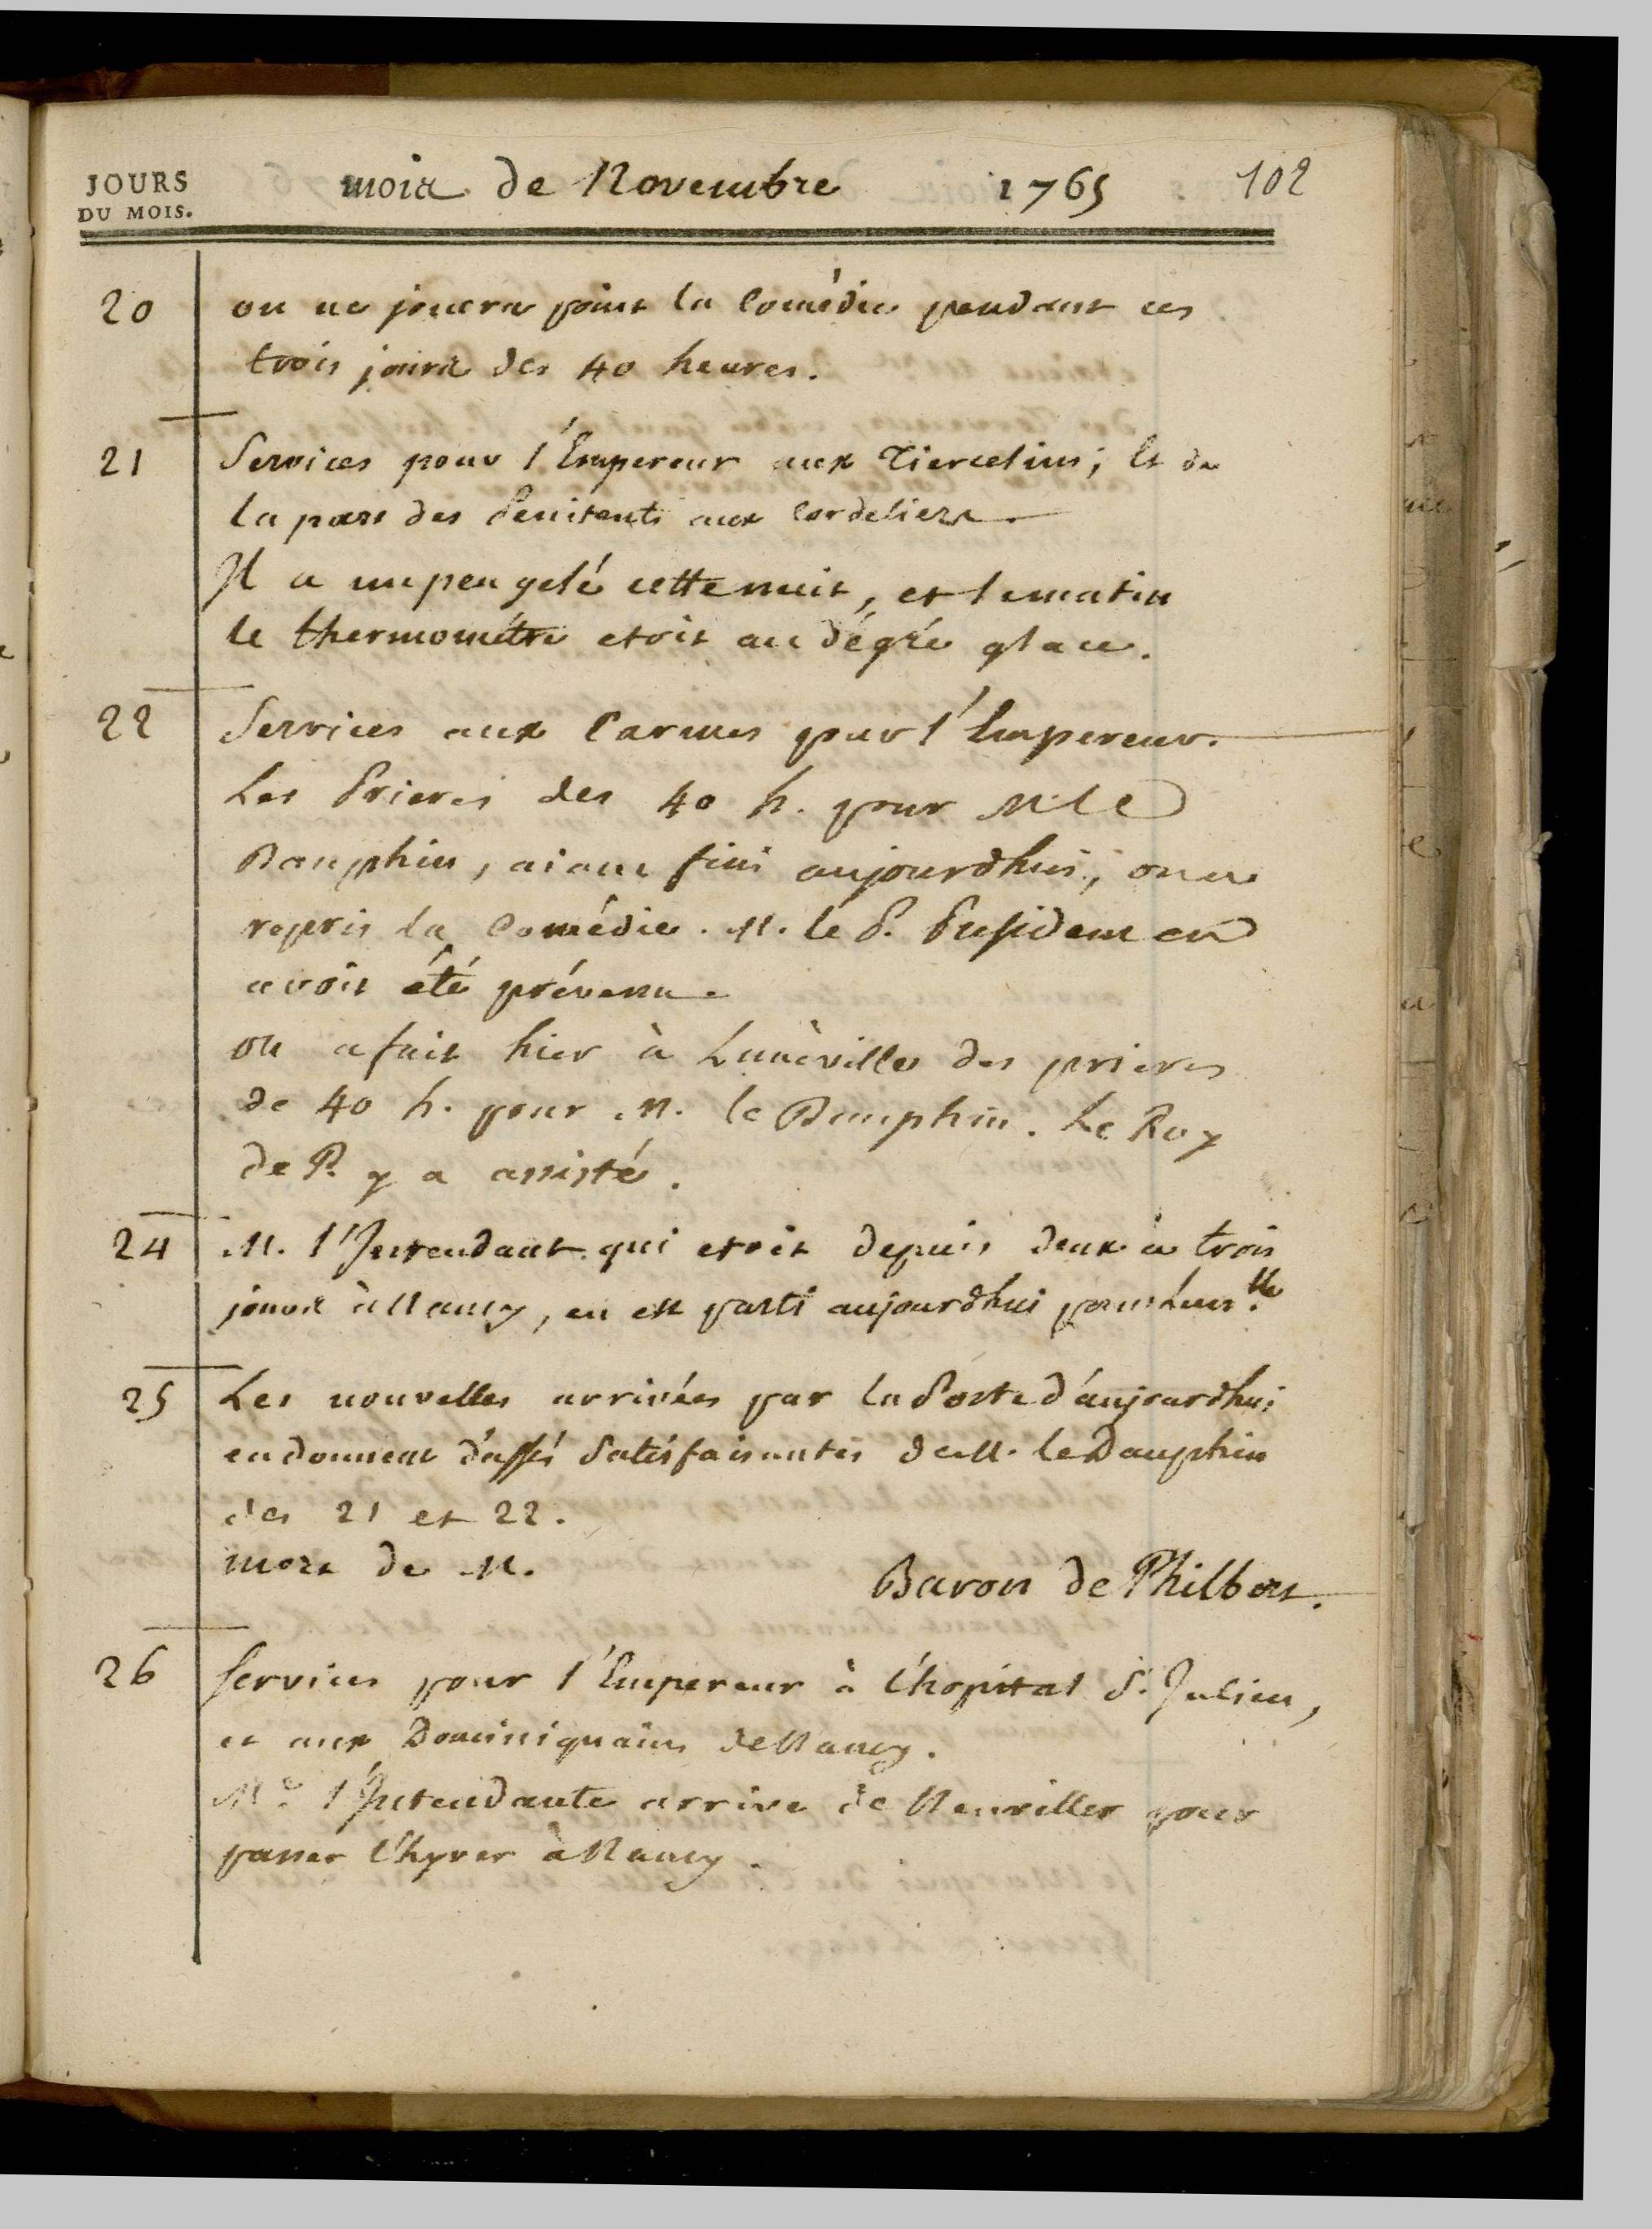 JOURS
DU MOIS.
mois de Novembre 1765 102
20 on ne jouera point la Comédie pendant ces
trois jours des 40 heures.
21 Services pour l'Empereur aux Tiercelins; Et de
la part des Penitents aux Cordeliers
Il a un peu gelé cette nuit, et le matin
le thermométre etoit au dégré glace.
22 Services aux Carmes pour l'Empereur.
Les Prieres des 40 h. pour M. le
Dauphin, aiant fini aujourdhui, on a
repris la Comédie. M. le P. President en
avoit été prévenu.
on a fait hier à Lunéville des prieres
de 40 h. pour M. le Dauphin. Le Roy
de P. y a assisté.
24 M. l'Intendant qui etoit depuis deux à trois
jours à Nancy, en est parti aujourdhui pour Lun.lle
25 Les nouvelles arrivées par la Poste d'aujourdhui
en donnent d'assés satisfaisantes de M. le Dauphin
des 21 et 22.
mort de M. Baron de Philbert.
26 Services pour l'Empereur à l'hopital St. Julien,
et aux Dominiquains de Nancy.
Me l'Intendante arrive de Neuviller pour
passer l'hyver à Nancy.